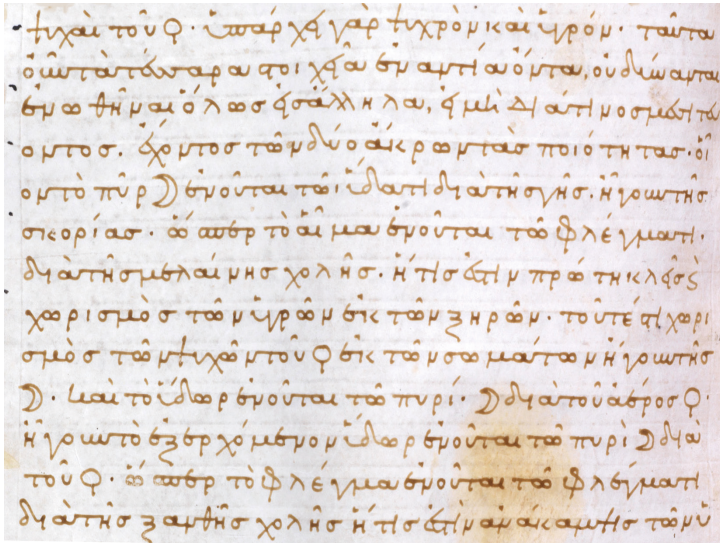 ψυχαὶ τοῦ ♀· ὑπάρχει γὰρ ψυχρὸν καὶ ὑγρόν· ταῦτα
οὖν τὰ τέσσαρα στοιχεῖα ἐναντία ὄντα, οὐ δύνανται
ἑνωθῆναι ὅλως εἰς ἄλληλα, εἰ μὴ διά τινος μεσιτεύ
οντος. ἔχοντος τῶν δύο ἄκρων τὰς ποιότητας· οἷ
ον τὸ πῦρ ☽ ἑνοῦται τῶ ὕδατι διὰ τῆς γῆς. ἤγουν τῆς
σκορίας· ὥσπερ τὸ αἷμα ἑνοῦται τῶ φλέγματι·
διὰ τῆς μελαίνης χολῆς. ἥτις ἐστὶν πρώτη κλῆσις
χωρισμὸς τῶν ὑγρῶν ἐκ τῶν ξηρῶν· τουτέστι χωρι
σμὸς τῶν ψυχῶν τοῦ ♀ ἐκ τῶν σωμάτων ἤγουν τῆς
☽· καὶ τὸ ὕδωρ ἑνοῦται τῶ πυρί· ☽ διὰ τοῦ ἀέρος ♀·
ἤγουν τὸ ἐξερχόμενον ὕδωρ ἑνοῦται τῶ πυρὶ ☽ διὰ
τοῦ ♀· ὥσπερ τὸ φλέγμα ἑνοῦται τῶ φλέγματι
διὰ τῆς ξανθῆς χολῆς ἥτις ἐστὶν ἀνάκαμψις τῶν ὑ